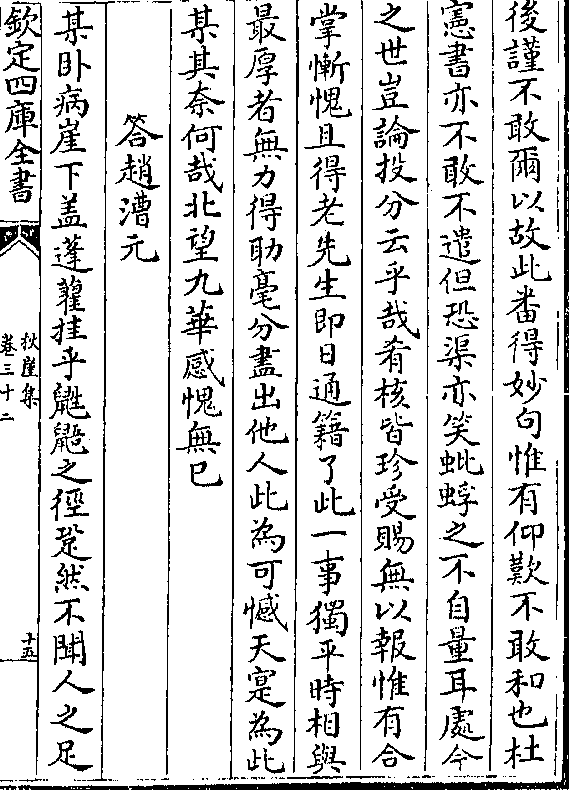 後謹不敢爾以故此番得妙句惟有仰歎不敢和也杜
憲書亦不敢不遣但恐渠亦笑蚍蜉之不自量耳處今
之世豈論投分云乎哉肴核皆珍受賜無以報惟有合
掌慚愧且得老先生即日通籍了此一事獨平時相與
最厚者無力得助毫分盡出他人此為可憾天寔為此
某其奈何哉北望九華感愧無已
答趙漕元
某卧病崖下盖蓬藋拄乎鼪鼯之徑跫然不聞人之足
欽定四庫全書
秋崖集
卷三十二
十五